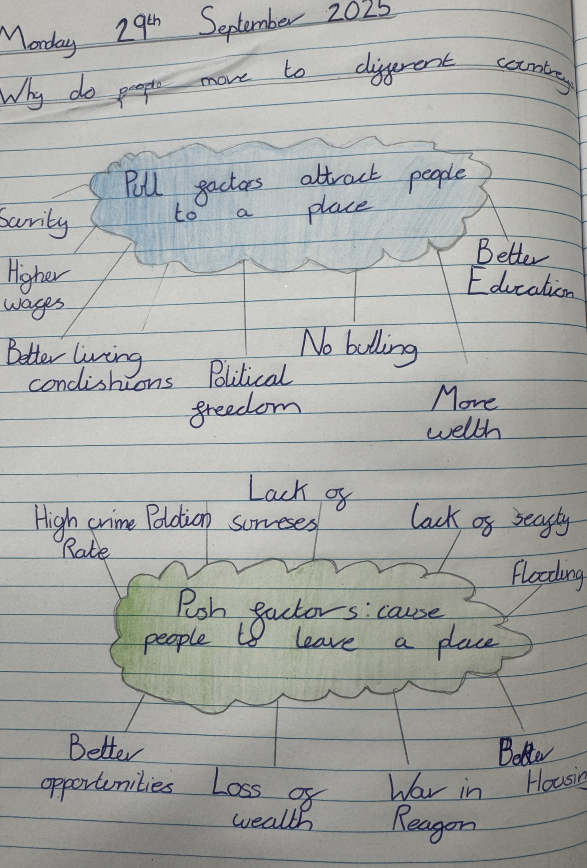 Monday 29th September 2025
Why do people move to different country
Pull factors attract people
to a place
Surity
Higher
wages
Better living
condishions
Political
freedom
No bulling
More
welth
Better
Education
High crime
Rate
Polotion
Lack of
surveses
Lack of seagty
Flooding
Push factors: cause
people to leave a place
Better
opportunities
Loss of
wealth
War in
Reagon
Better
Housin